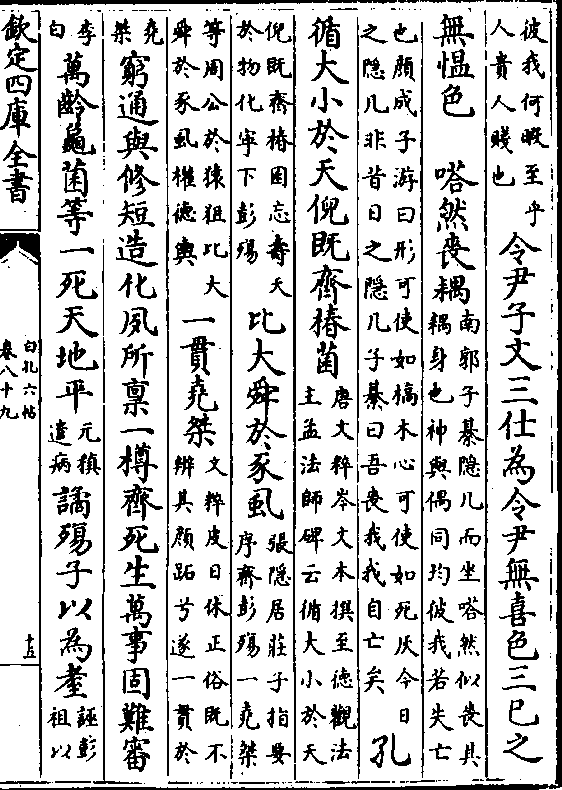 彼我何暇至乎
人貴人賤也
令尹子文三仕為令尹無喜色三已之
無愠色　嗒然喪耦
南郭子綦隠几而坐嗒然似喪其
耦身也神與偶同均彼我若失亡
也顔成子游曰形可使如槁木心可使如死灰今日
之隠几非昔日之隠几子綦曰吾喪我我自亡矣
孔
循大小於天倪既齊椿菌
唐文粹岑文本撰至德觀法
主孟法師碑云循大小於天
倪既齊椿囷忘壽夭
於物化寧下彭殤
比大舜於豕虱
張隠居莊子指要
序齊彭殤一堯桀
等周公於猿狙比大
舜於豕虱權德輿
一貫堯桀
文粹皮日休正俗既不
辨其顔跖兮遂一貫於
堯
桀
窮通與修短造化夙所稟一樽齊死生萬事固難審
李
白
萬齡龜菌等一死天地平
元稹
遣病
譎殤子以為耋
誣彭
祖以
欽定四庫全書
白孔六帖
卷八十九
十五